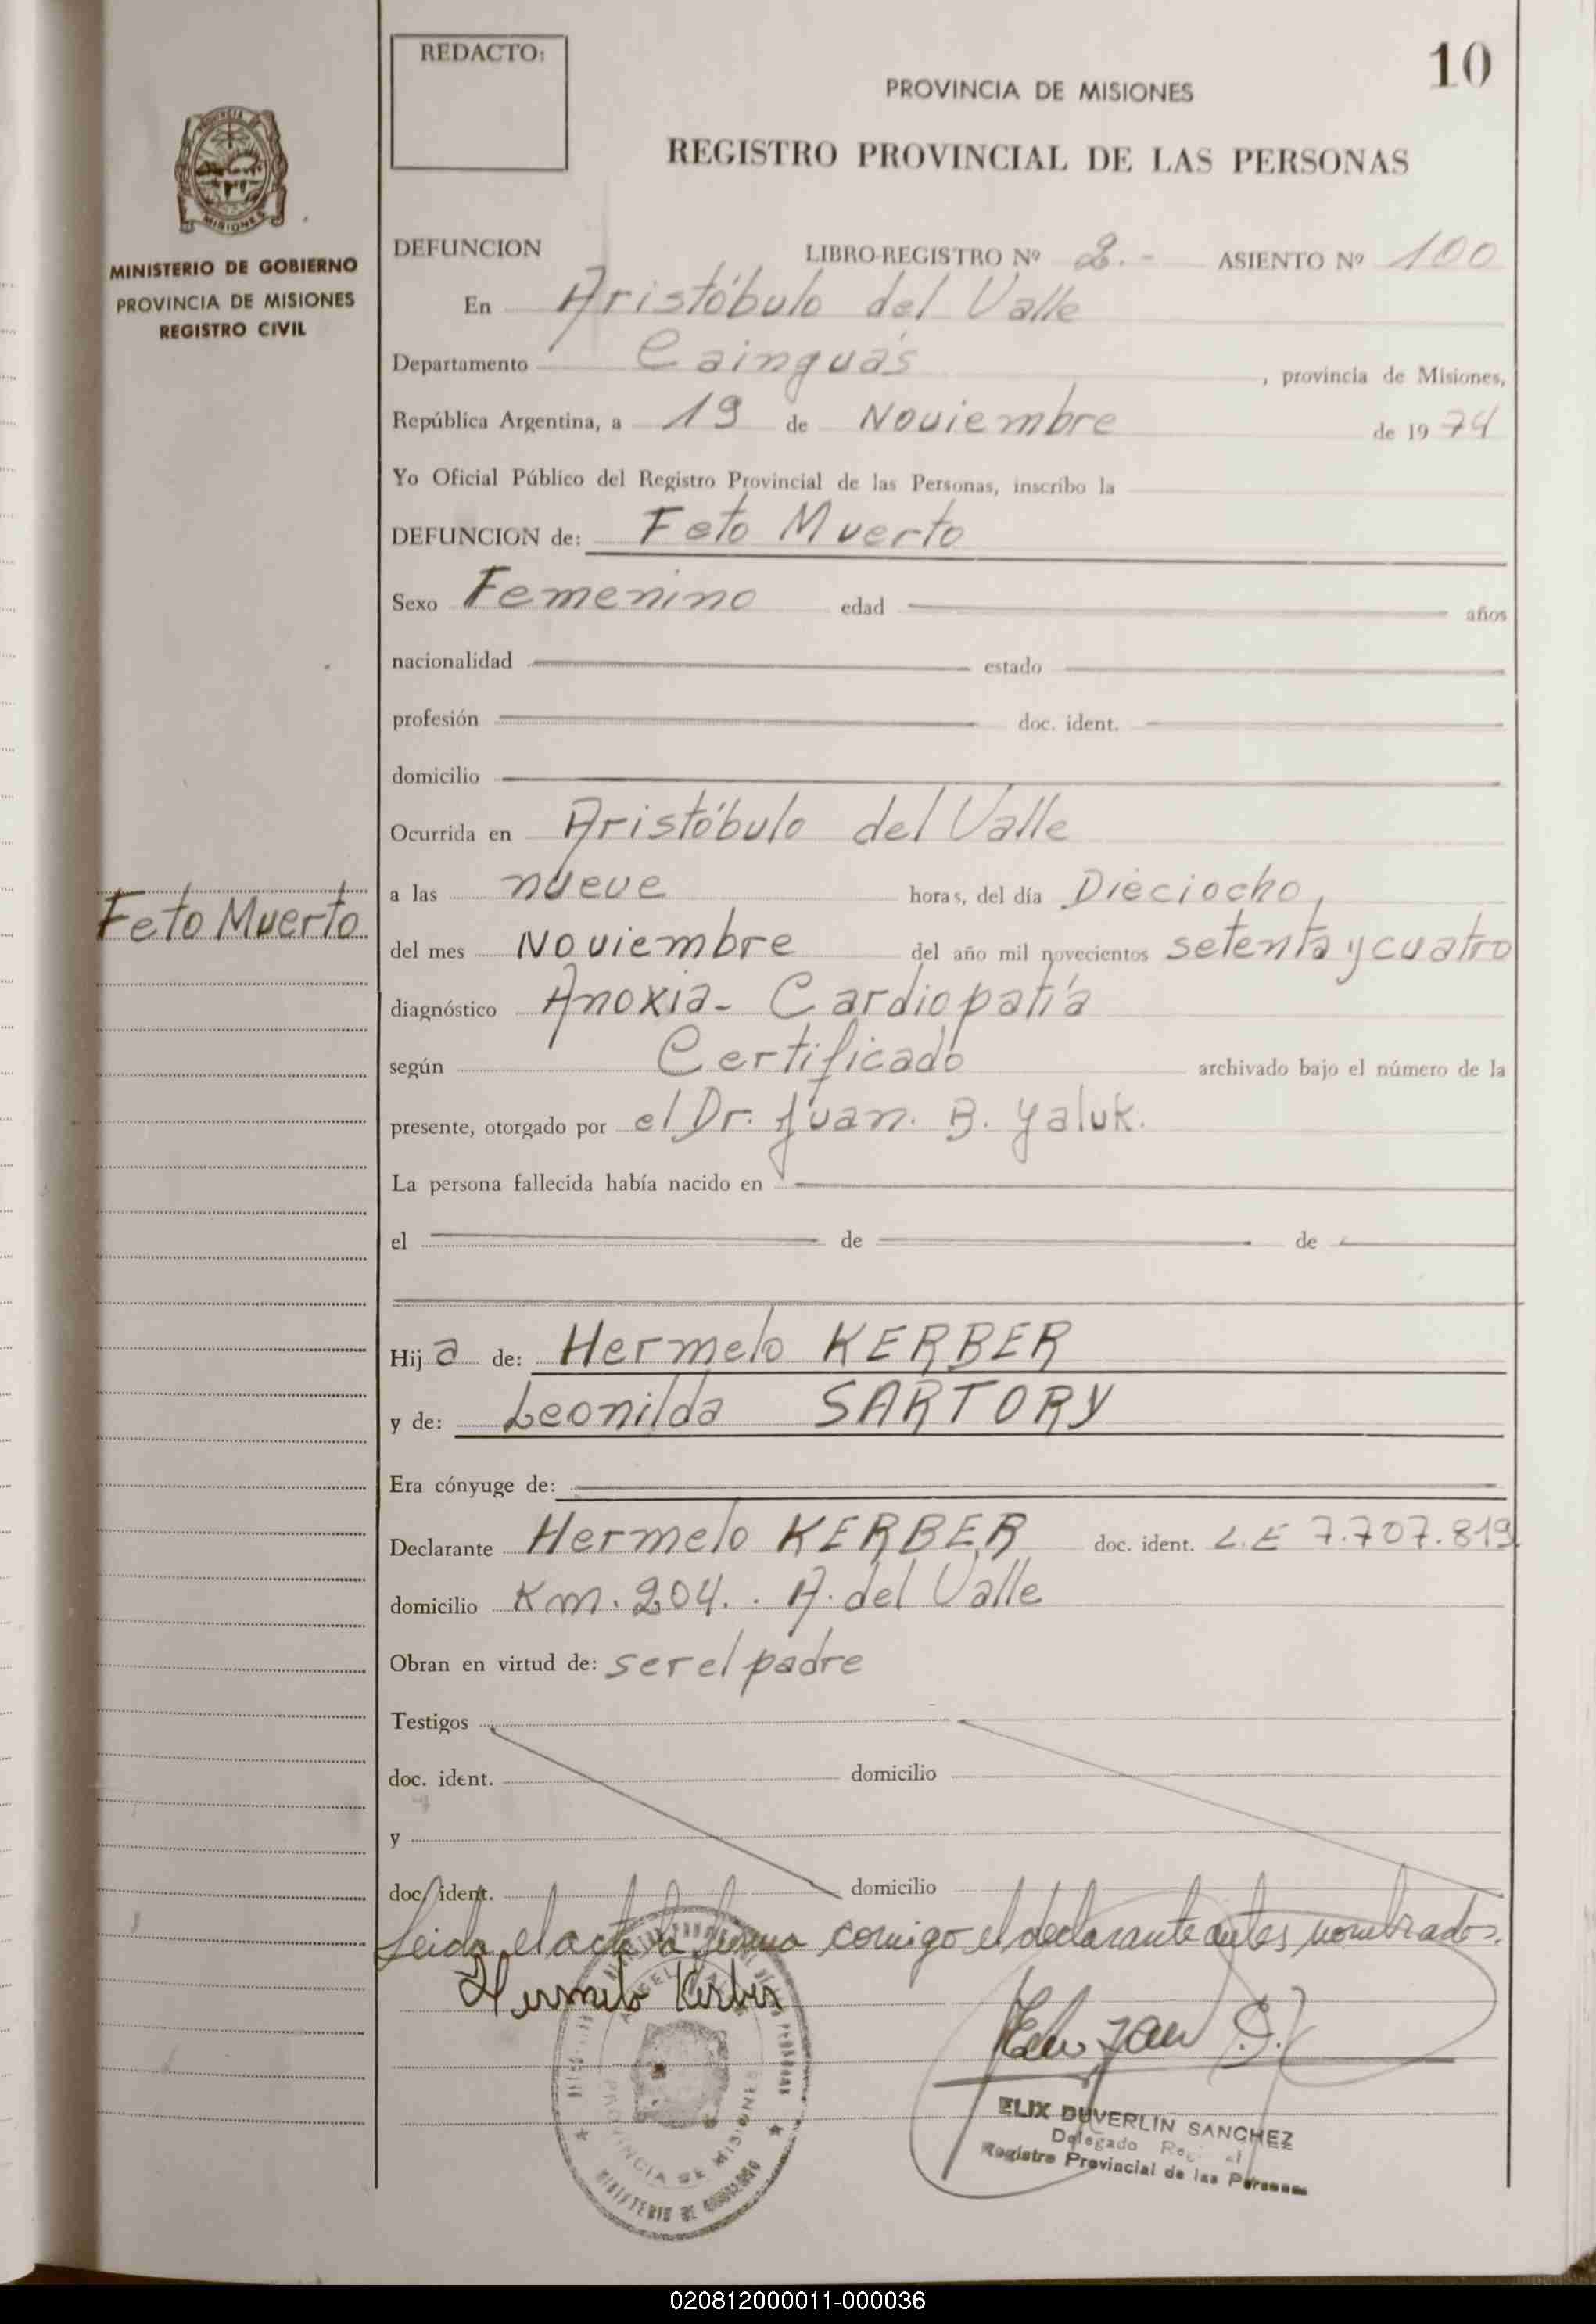 REDACTO:
10
PROVINCIA DE MISIONES
REGISTRO PROVINCIAL DE LAS PERSONAS
MISIONES
MINISTERIO DE GOBIERNO
PROVINCIA DE MISIONES
REGISTRO CIVIL
DEFUNCION LIBRO-REGISTRO Nº 2.- ASIENTO Nº 100
En Aristóbulo del Valle
Departamento Cainguás, provincia de Misiones,
República Argentina, a 19 de Noviembre de 1974
Yo Oficial Público del Registro Provincial de las Personas, inscribo la
DEFUNCION de: Feto Muerto
Sexo Femenino edad años
nacionalidad estado
profesión doc. ident.
domicilio
Ocurrida en Aristóbulo del Valle
a las nueve horas, del día Dieciocho,
Feto Muerto
del mes Noviembre del año mil novecientos setenta y cuatro
diagnóstico Anoxia- Cardiopatía
según Certificado archivado bajo el número de la
presente, otorgado por el Dr. Juan. B. Yaluk.
La persona fallecida había nacido en
el de de
Hija de: Hermelo KERBER
y de: Leonilda SARTORY
Era cónyuge de:
Declarante Hermelo KERBER doc. ident. L.E 7.707.819
domicilio Km. 204. . A. del Valle
Obran en virtud de: ser el padre
Testigos
doc. ident. domicilio
y
doc. ident. domicilio
Leida el acta la firma comigo el declarante antes nombrado.
Hermelo Kerber
PROVINCIA DE MISIONES
MINISTERIO DE GOBIERNO
ELIX DUVERLIN SANCHEZ
Delegado
Registro Provincial de las Personas
020812000011-000036